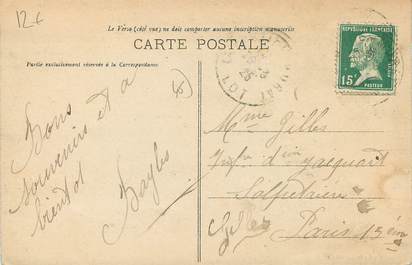 12 €
Le Verso (côté vue) ne doit comporter aucune inscription manuscrite
CARTE POSTALE
Partie exclusivement réservée à la Correspondance
RÉPUBLIQUE FRANÇAISE
15c
PASTEUR
LOT
Bons
souvenirs et a
bientot
Bayles
Mme Gilles
Jacquart
Salpetriere
Paris 13ème
Gilles